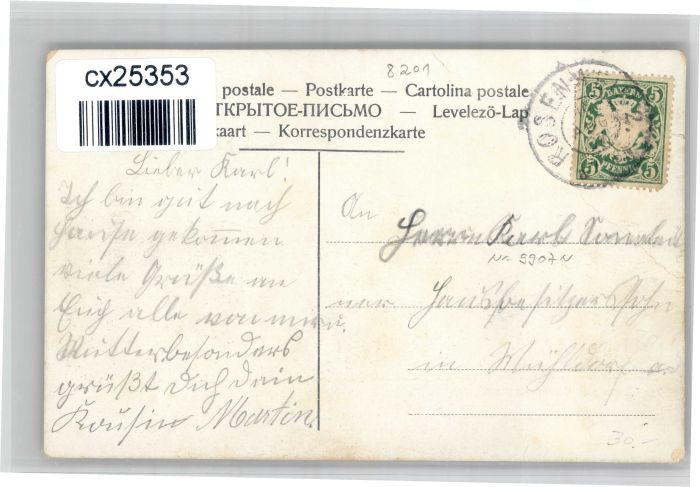 cx25353
8201
postale — Postkarte — Cartolina postale
ТКРЫТОЕ-ПИСЬМО — Levelező-Lap
aart — Korrespondenzkarte
ROSENH
BAYERN
5 5
5 5
PFENNIG
Lieber Karl!
Ich bin gut nach
Hause gekommen
viele Grüße an
Euch alle von mir u.
Mutter besonders
grüßt Dich dein
Kousin Martin.
An
Herrn Karl
Nr. 9907N
Hausbesitzerssohn
in Mühldorf
30.-